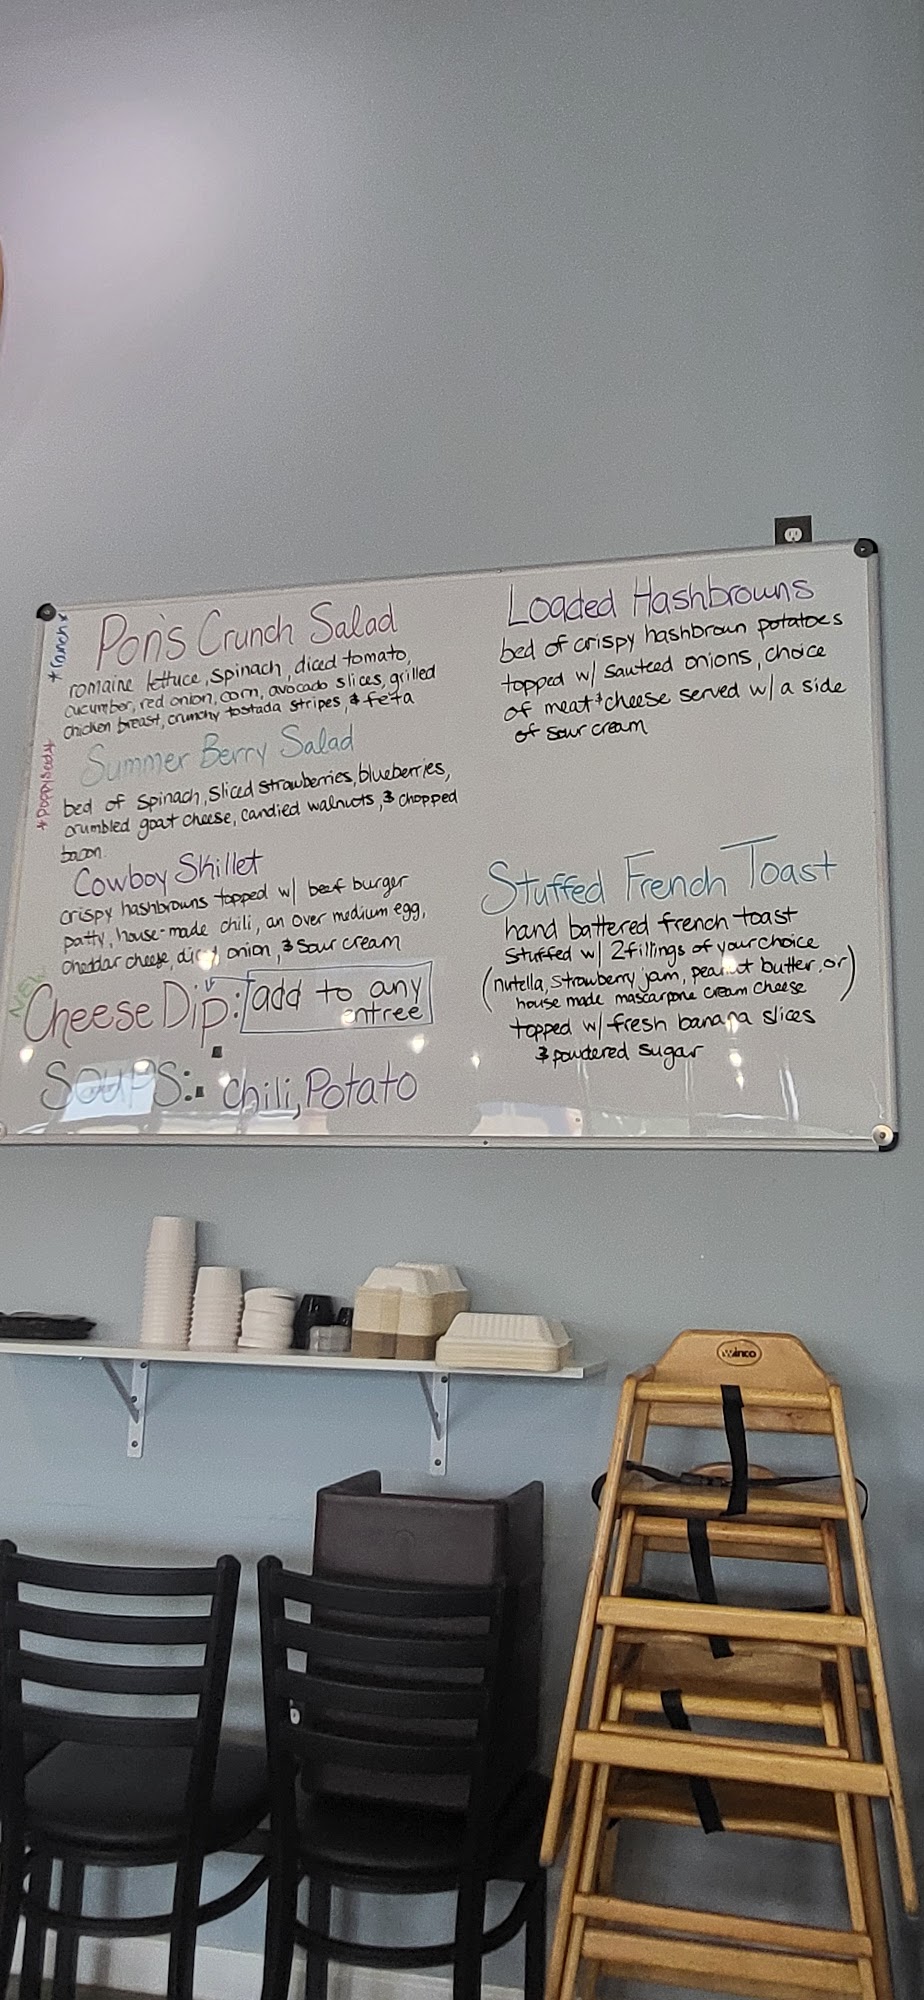 *ranch*
Pon's Crunch Salad
romaine lettuce, spinach, diced tomato,
cucumber, red onion, corn, avocado slices, grilled
chicken breast, crunchy tostada stripes, & feta
*poppyseed*
Summer Berry Salad
bed of spinach, sliced strawberries, blueberries,
crumbled goat cheese, candied walnuts, & chopped
bacon.
Cowboy Skillet
crispy hashbrowns topped w/ beef burger
patty, house-made chili, an over medium egg,
cheddar cheese, diced onion, & sour cream
NEW
Cheese Dip: add to any
entree
Soups: Chili, Potato
Loaded Hashbrowns
bed of crispy hashbrown potatoes
topped w/ sauteed onions, choice
of meat & cheese served w/ a side
of sour cream
Stuffed French Toast
hand battered french toast
stuffed w/ 2 fillings of your choice
(nutella, strawberry jam, peanut butter, or
house made mascarpone cream cheese)
topped w/ fresh banana slices
& powdered sugar
winco